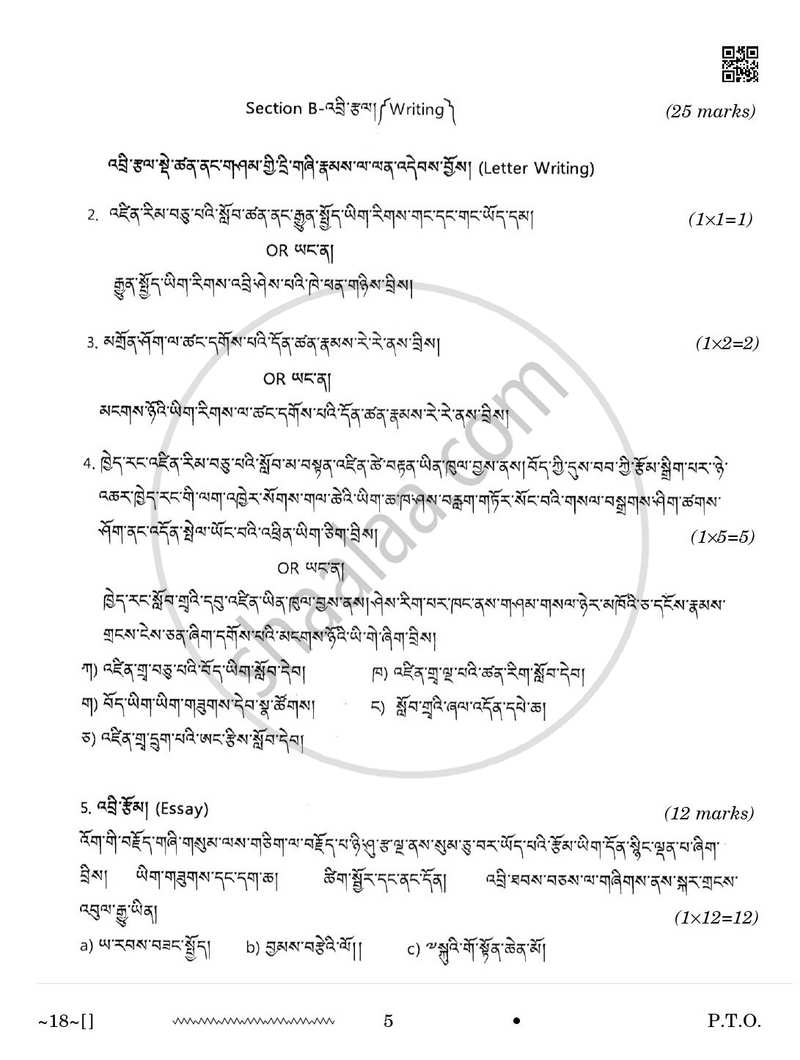 Section B-འབྲི་རྩལ། ༼Writing༽ (25 marks)
འབྲི་རྩལ་སྡེ་ཚན་ནང་གཤམ་གྱི་དྲི་གཞི་རྣམས་ལ་ལན་འདེབས་བྱོས། (Letter Writing)
2. འཛིན་རིམ་བཅུ་པའི་སློབ་ཚན་ནང་རྒྱུན་སྤྱོད་ཡིག་རིགས་གང་དང་གང་ཡོད་དམ། (1×1=1)
OR ཡང་ན།
རྒྱུན་སྤྱོད་ཡིག་རིགས་འབྲི་ཤེས་པའི་ཁེ་ཕན་གཉིས་བྲིས།
3. མགྲོན་ཤོག་ལ་ཚང་དགོས་པའི་དོན་ཚན་རྣམས་རེ་རེ་ནས་བྲིས། (1×2=2)
OR ཡང་ན།
མངགས་ཉོའི་ཡིག་རིགས་ལ་ཚང་དགོས་པའི་དོན་ཚན་རྣམས་རེ་རེ་ནས་བྲིས།
4. ཁྱེད་རང་འཛིན་རིམ་བཅུ་པའི་སློབ་མ་བསྟན་འཛིན་ཚེ་བརྟན་ཡིན་ཁུལ་བྱས་ནས། བོད་ཀྱི་དུས་བབ་ཀྱི་རྩོམ་སྒྲིག་པར་ཉེ་
འཆར་ཁྱེད་རང་གི་ལག་འཁྱེར་སོགས་གལ་ཆེའི་ཡིག་ཆ་ཁ་ཤས་བརླག་གཏོར་སོང་བའི་གསལ་བསྒྲགས་ཤིག་ཚགས་
ཤོག་ནང་འདོན་སྤེལ་ཡོང་བའི་འཕྲིན་ཡིག་ཅིག་བྲིས། (1×5=5)
OR ཡང་ན།
ཁྱེད་རང་སློབ་གྲྭའི་དབུ་འཛིན་ཡིན་ཁུལ་བྱས་ནས། ཤེས་རིག་པར་ཁང་ནས་གཤམ་གསལ་ཉེར་མཁོའི་ཅ་དངོས་རྣམས་
གྲངས་ངེས་ཅན་ཞིག་དགོས་པའི་མངགས་ཉོའི་ཡི་གེ་ཞིག་བྲིས།
ཀ) འཛིན་གྲྭ་བཅུ་པའི་བོད་ཡིག་སློབ་དེབ། ཁ) འཛིན་གྲྭ་ལྔ་པའི་ཚན་རིག་སློབ་དེབ།
ག) བོད་ཡིག་ཡིག་གཟུགས་དེབ་སྣ་ཚོགས། ང) སློབ་གྲྭའི་ཞལ་འདོན་དཔེ་ཆ།
ཅ) འཛིན་གྲྭ་དྲུག་པའི་ཨང་རྩིས་སློབ་དེབ།
5. འབྲི་རྩོམ། (Essay) (12 marks)
འོག་གི་བརྗོད་གཞི་གསུམ་ལས་གཅིག་ལ་བརྗོད་པ་ཉི་ཤུ་རྩ་ལྔ་ནས་སུམ་ཅུ་བར་ཡོད་པའི་རྩོམ་ཡིག་དོན་སྙིང་ལྡན་པ་ཞིག་
བྲིས། ཡིག་གཟུགས་དང་དག་ཆ། ཚིག་སྦྱོར་དང་ནང་དོན། འབྲི་ཐབས་བཅས་ལ་གཞིགས་ནས་སྐར་གྲངས་
འབུལ་རྒྱུ་ཡིན། (1×12=12)
a) ཡ་རབས་བཟང་སྤྱོད། b) བྱམས་བརྩེའི་ལོ།། c) ༸སྐུའི་གོ་སྟོན་ཆེན་མོ།
~18~[] 5 • P.T.O.
shaalaa.com